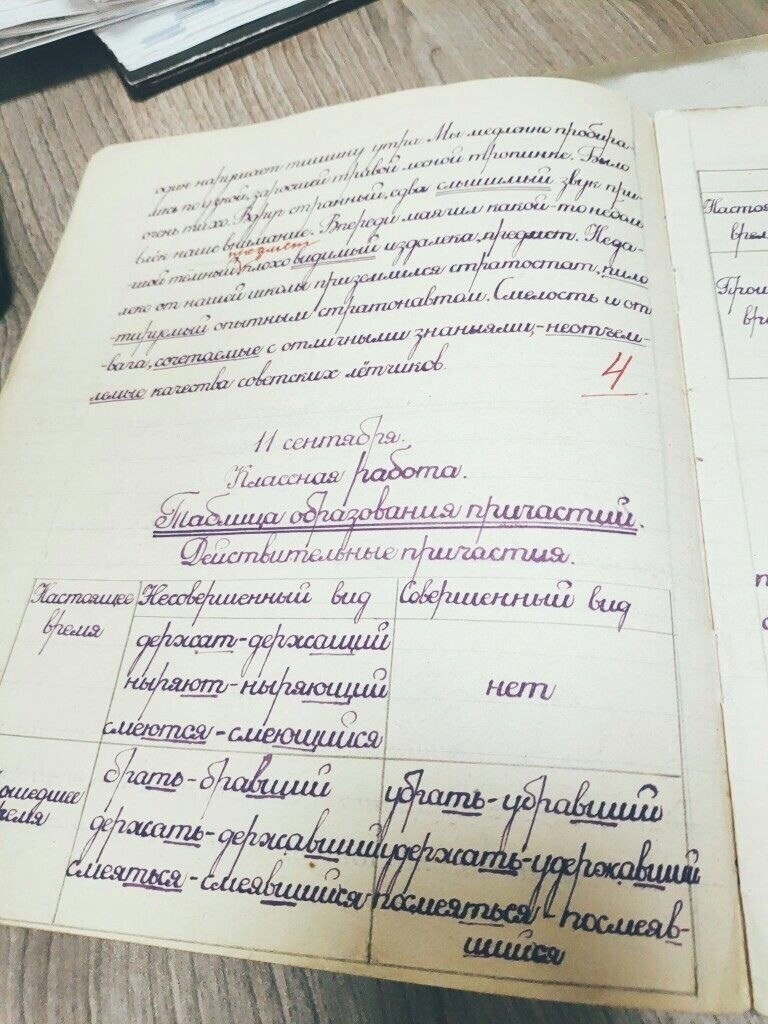 один нарушает тишину утра. Мы медленно пробира-
лись по узкой, заросшей травой лесной тропинке. Было
очень тихо. Вдруг странный, едва слышимый звук при-
влёк наше внимание. Впереди маячил какой-то неболь-
предмет
-шой тёмный, плохо видимый издалека, предмет. Неда-
леко от нашей школы приземлился стратостат, пило
-тируемый опытным стратонавтом. Смелость и от
-вага, сочетаемые с отличными знаниями, - неотъем-
лемые качества советских лётчиков.
4
11 сентября.
Классная работа.
Таблица образования причастий.
Действительные причастия.
Настоящее время
Несовершенный вид
Совершенный вид
держат - держащий
ныряют - ныряющий
смеются - смеющийся
нет
ошедшее
ремя
брать - бравший
держать - державший
смеяться - смеявшийся
убрать - убравший
удержать - удержавший
посмеяться - посмеяв-
шийся
Настоя
врем
Прош
вр